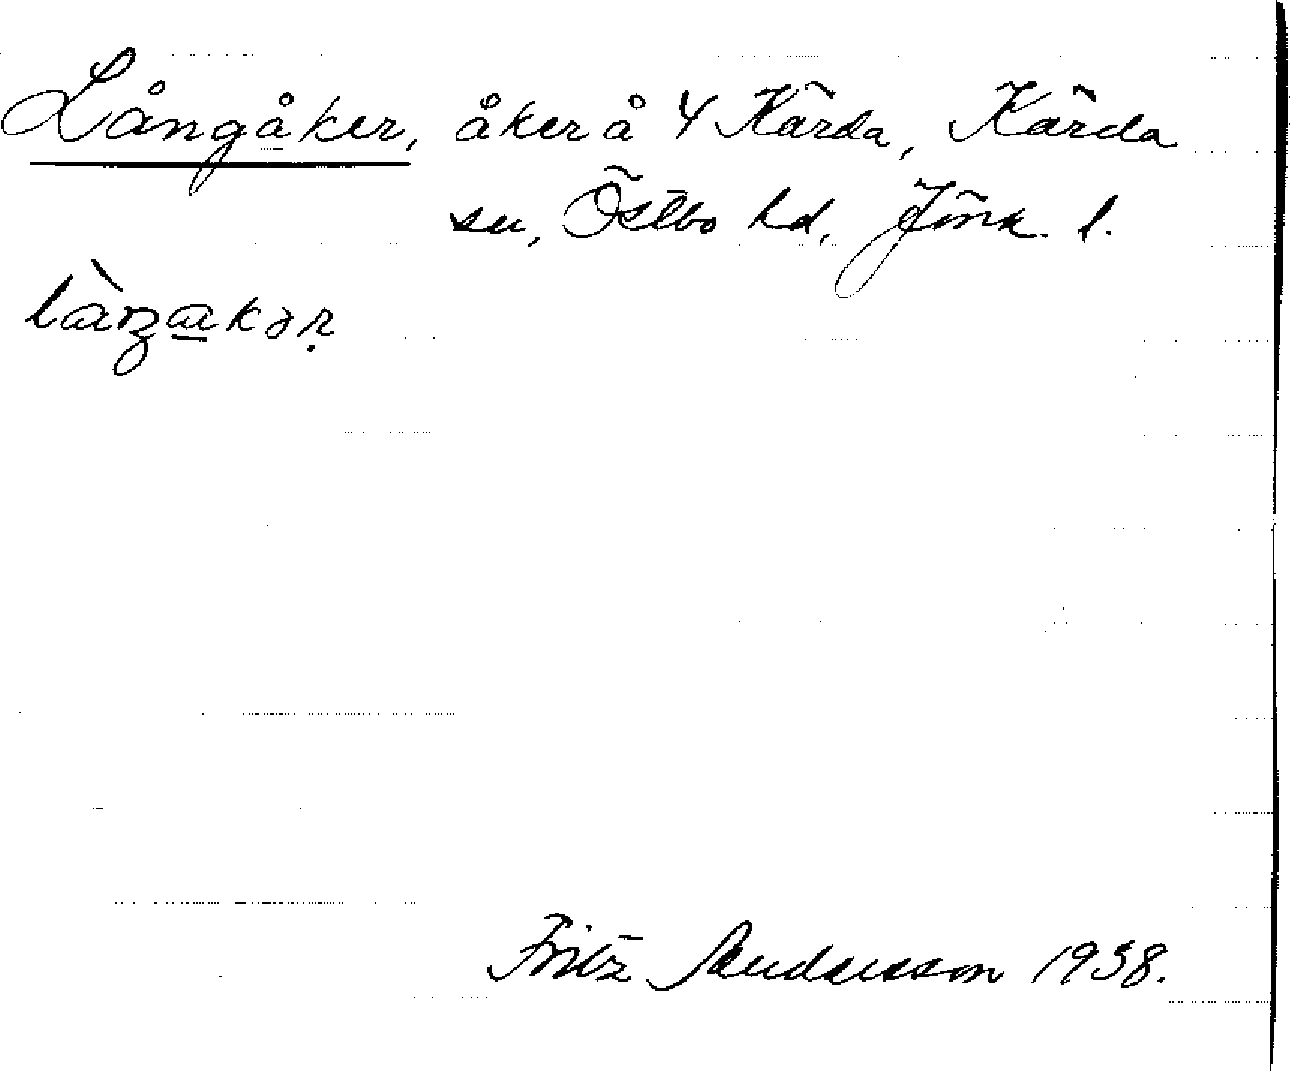 Långåker, åker å 4 Kärda, Kärda
sn, Östbo hd, Jönk. l.
làŋakəṛ
Fritz Andersson 1938.